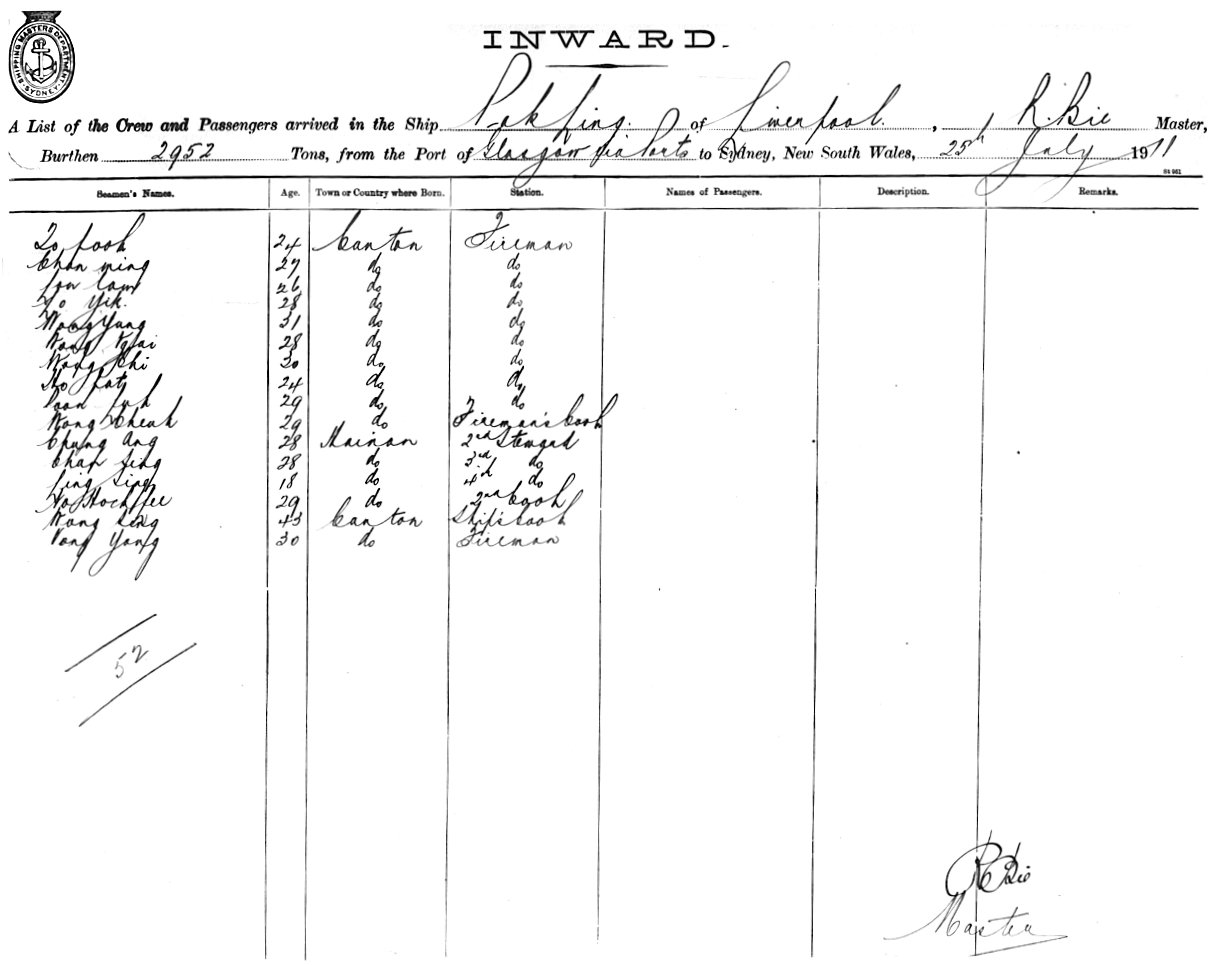 SHIPPING MASTERS DEPARTMENT SYDNEY
INWARD.
A List of the Crew and Passengers arrived in the Ship Pak Ling. of Liverpool. , R. Bie Master,
Burthen 2952 Tons, from the Port of Glasgow via Ports to Sydney, New South Wales, 25th July 1911
St 951
Seamen's Names. Age. Town or Country where Born. Station. Names of Passengers. Description. Remarks.
24 Canton Fireman
Chan ming 27 do do
26 do do
Yik. 28 do do
Wong Yung 31 do do
Wong 28 do do
Wong Chi 30 do do
Ho 24 do do
29 do do
Wong Cheuk 29 do Fireman's Cook
Chung Ang 28 Hainan 2nd Steward
Chan Sing 28 do 3rd do
Ling Sing 18 do 4th do
29 do 2nd Cook
Wong Sing 43 Canton Ship's Cook
Yong 30 do Fireman
52
R Bie
Master